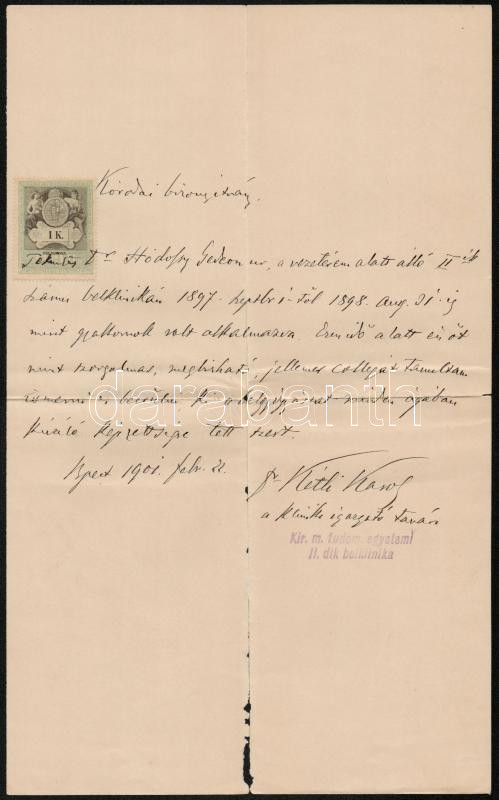 Kórodai bizonyítvány.
1 K.
Tekintetes Dr Hódossy Gedeon ur, a vezetésem alatt álló II ik
számu belklinikán 1897. septbr 1-től 1898. aug. 31-ig
mint gyakornok volt alkalmazva. Ezen idő alatt én őt
mint szorgalmas, megbizható, jellemes collegát tanultam
ismerni és becsülni ki a belgyógyászat minden ágában
kiváló képzettségre tett szert.
Bpest 1901. febr. 22.
Dr Kétli Károly
a klinika igazgató tanára
Kir. m. tudom. egyetemi
II. dik belklinika
darabanth.com